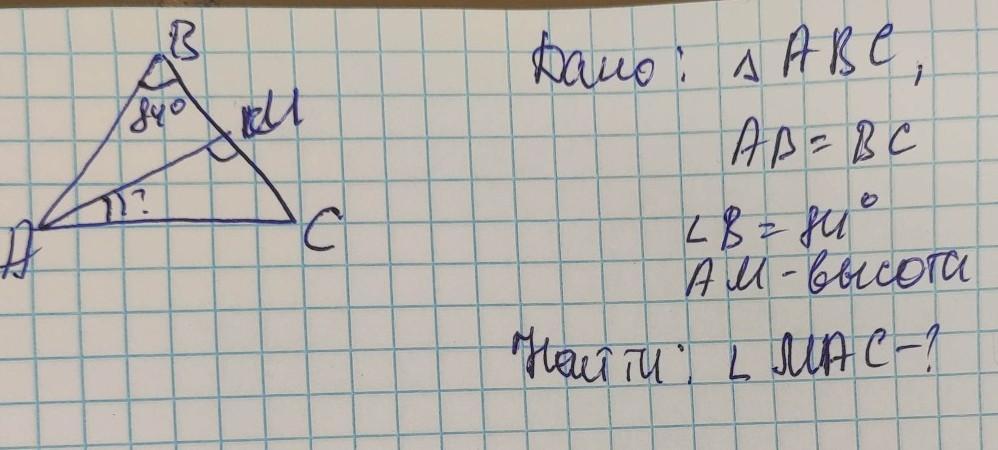 B
84°
M
?
A
C
Дано: △ ABC,
AB = BC
∠B = 84°
AM - высота
Найти: ∠ MAC - ?